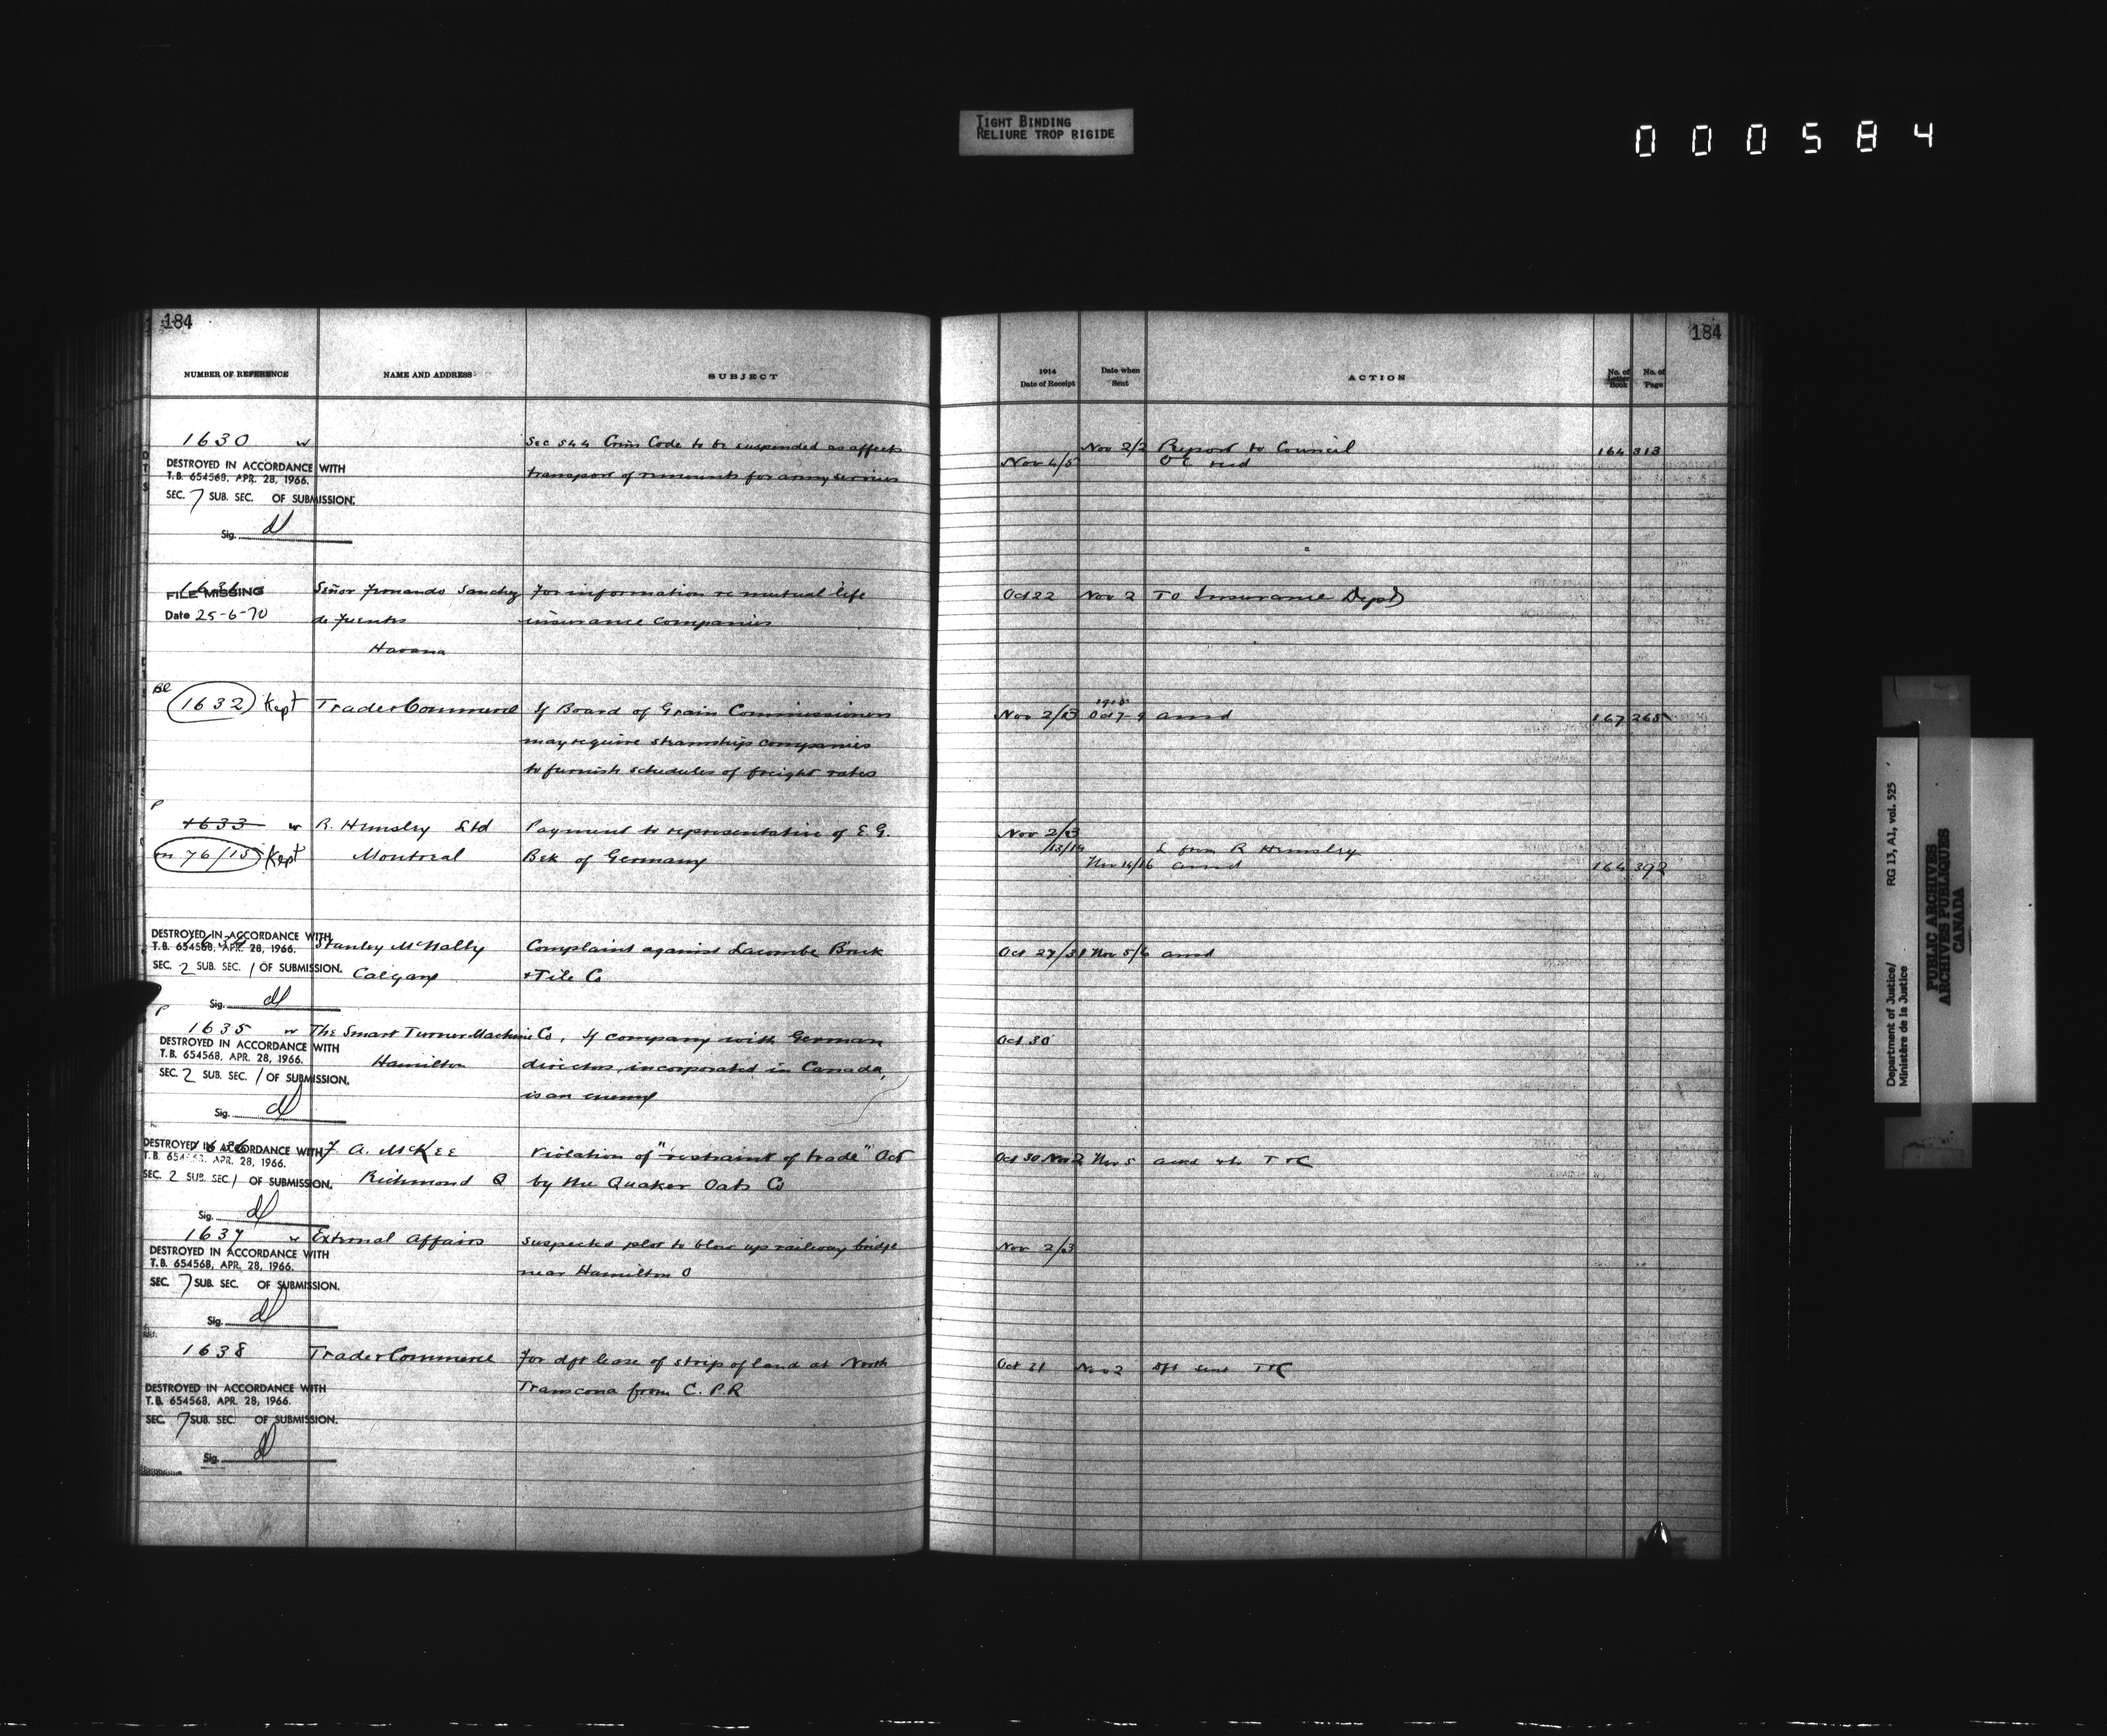 TIGHT BINDING
RELIURE TROP RIGIDE
000584
184
NUMBER OF REFERENCE NAME AND ADDRESS SUBJECT
1914 Date of Receipt Date when Sent ACTION No. of Letter Book No. of Page
184
1630 w Sec 544 Crim Code to be suspended as affects
transport of remounts for army services
DESTROYED IN ACCORDANCE WITH
T.B. 654568, APR. 28, 1966.
SEC. 7 SUB. SEC. OF SUBMISSION.
Sig.
Nov 2/2 Report to Council 164 313
Nov 4/5 O C recd
1631 Señor Fernando Sanchez For information re mutual life
FILE MISSING
Date 25-6-70 de Fuentes insurance companies
Havana
Oct 22 Nov 2 To Insurance Dept
1632 Kept Trade & Commerce If Board of Grain Commissioners
may require steamship companies
to furnish schedules of freight rates
Nov 2/3 1915 Oct 7-9 ansd 167 265
P
1633 w R. Hemsley Ltd Payment to representative of E. G.
on 76/15 Kept Montreal Bek of Germany
Nov 2/3
13/14 L from R Hemsley
Nov 14/16 ansd 164 392
DESTROYED IN ACCORDANCE WITH
T.B. 654568, APR. 28, 1966.
SEC. 2 SUB. SEC. 1 OF SUBMISSION.
Sig.
Stanley McNally Complaint against Lacombe Brick
Calgary & Tile Co
Oct 27/31 Nov 5/6 ansd
P
1635 w The Smart Turner Machine Co, If company with German
Hamilton directors, incorporated in Canada,
is an enemy
DESTROYED IN ACCORDANCE WITH
T.B. 654568, APR. 28, 1966.
SEC. 2 SUB. SEC. 1 OF SUBMISSION.
Sig.
Oct 30
1636 F. A. McKee Violation of "restraint of trade" Act
Richmond Q by the Quaker Oats Co
DESTROYED IN ACCORDANCE WITH
T.B. 654568, APR. 28, 1966.
SEC. 2 SUB. SEC. 1 OF SUBMISSION.
Sig.
Oct 30 Nov 2 Nov 5 T & C
1637 w External Affairs Suspected plot to blow up railway bridge
near Hamilton O
DESTROYED IN ACCORDANCE WITH
T.B. 654568, APR. 28, 1966.
SEC. 7 SUB. SEC. OF SUBMISSION.
Sig.
Nov 2/3
1638 Trade & Commerce For dft lease of strip of land at North
Transcona from C. P. R
DESTROYED IN ACCORDANCE WITH
T.B. 654568, APR. 28, 1966.
SEC. 7 SUB. SEC. OF SUBMISSION.
Sig.
Oct 31 Nov 2 dft sent T & C
Department of Justice/ RG 13, A1, vol. 525
Ministère de la Justice
PUBLIC ARCHIVES
ARCHIVES PUBLIQUES
CANADA